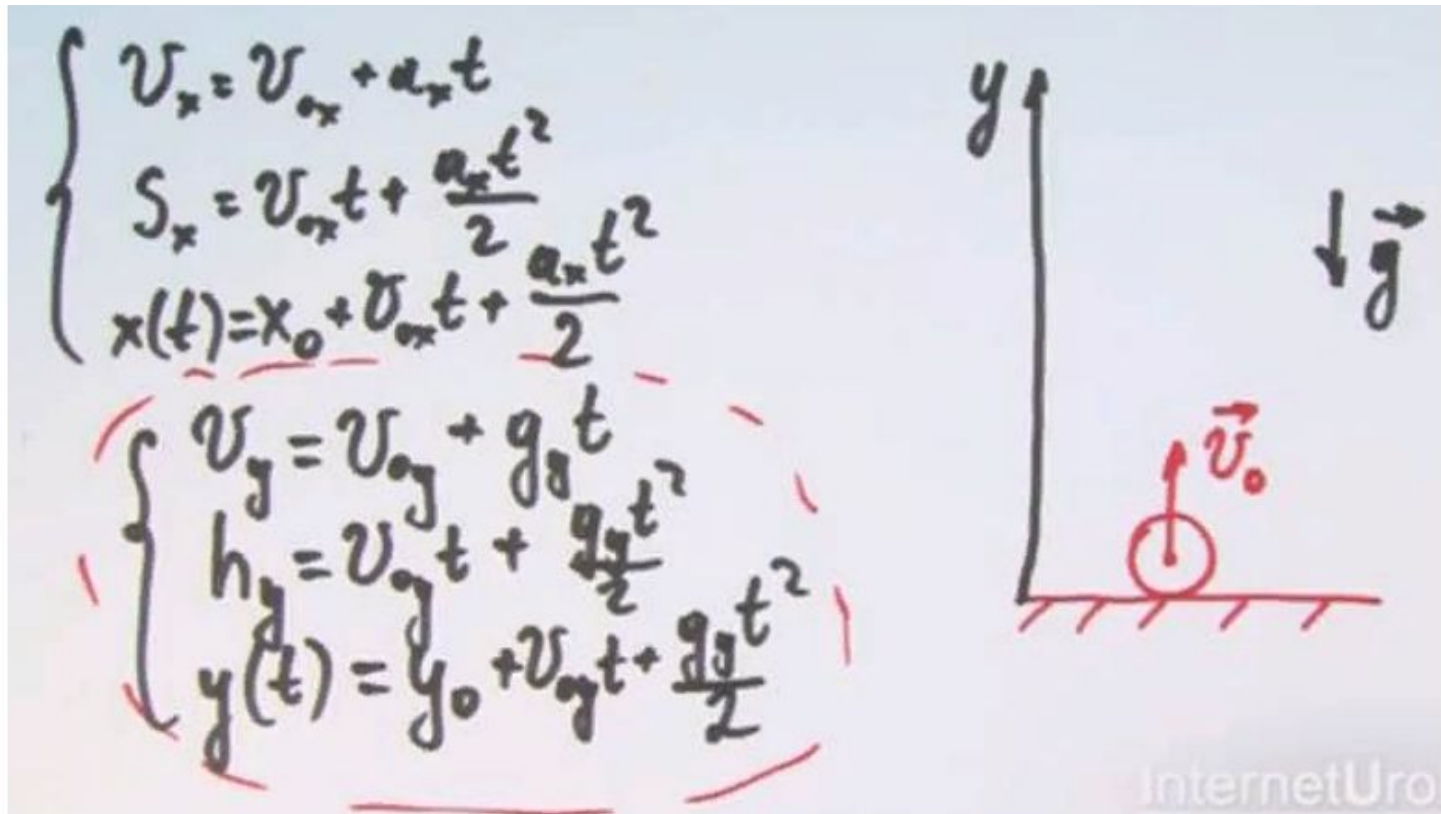 υₓ = υ₀ₓ + aₓt
Sₓ = υ₀ₓt + aₓt²/2
x(t) = x₀ + υ₀ₓt + aₓt²/2
υ_y = υ₀_y + g_y t
h_y = υ₀_y t + g_y t²/2
y(t) = y₀ + υ₀_y t + g_y t²/2
y
g⃗
υ⃗₀
InternetUro